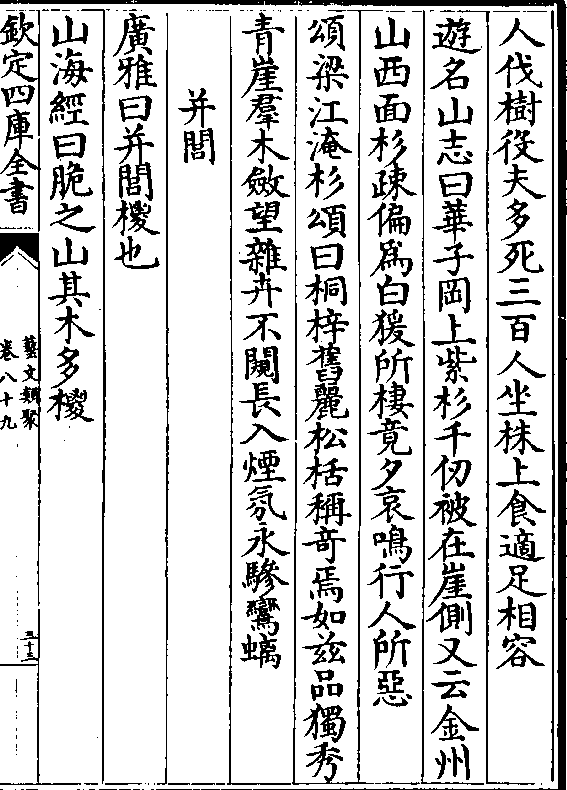 人伐樹役夫多死三百人坐株上食適足相容
遊名山志曰華子岡上紫杉千仞被在崖側又云金州
山西面杉疎偏為白猨所棲竟夕哀鳴行人所惡
頌梁江淹杉頌曰桐梓舊麗松栝稱竒焉如兹品獨秀
青崖羣木斂望雜卉不闚長入煙氛永驂鸞螭
并閭
廣雅曰并閭椶也
山海經曰脆之山其木多椶
欽定四庫全書
藝文類聚
卷八十九
三十三